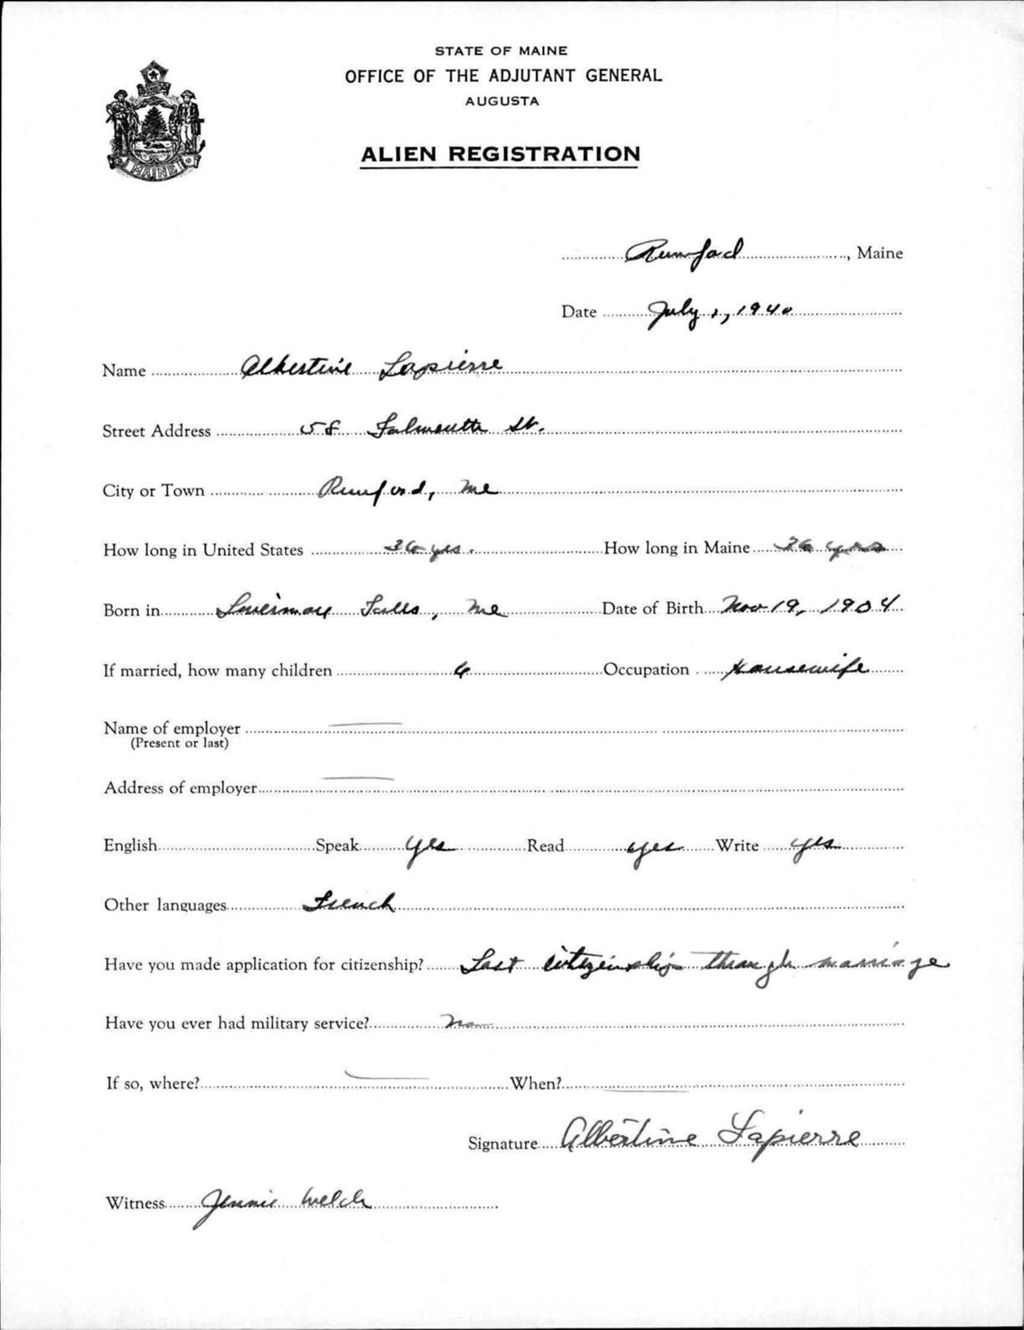 STATE OF MAINE
OFFICE OF THE ADJUTANT GENERAL
AUGUSTA
ALIEN REGISTRATION
MAINE
Rumford, Maine
Date July 1, 1940
Name Albertine Lapierre
Street Address 58 Falmouth St.
City or Town Rumford, Me
How long in United States 36 yrs. How long in Maine 36 yrs
Born in Livermore Falls, Me Date of Birth Nov 19, 1904
If married, how many children 6 Occupation Housewife
Name of employer
(Present or last)
Address of employer
English Speak Yes Read yes Write yes
Other languages French
Have you made application for citizenship? Lost citizenship through marriage
Have you ever had military service? No
If so, where? When?
Signature Albertine Lapierre
Witness Jennie Welch